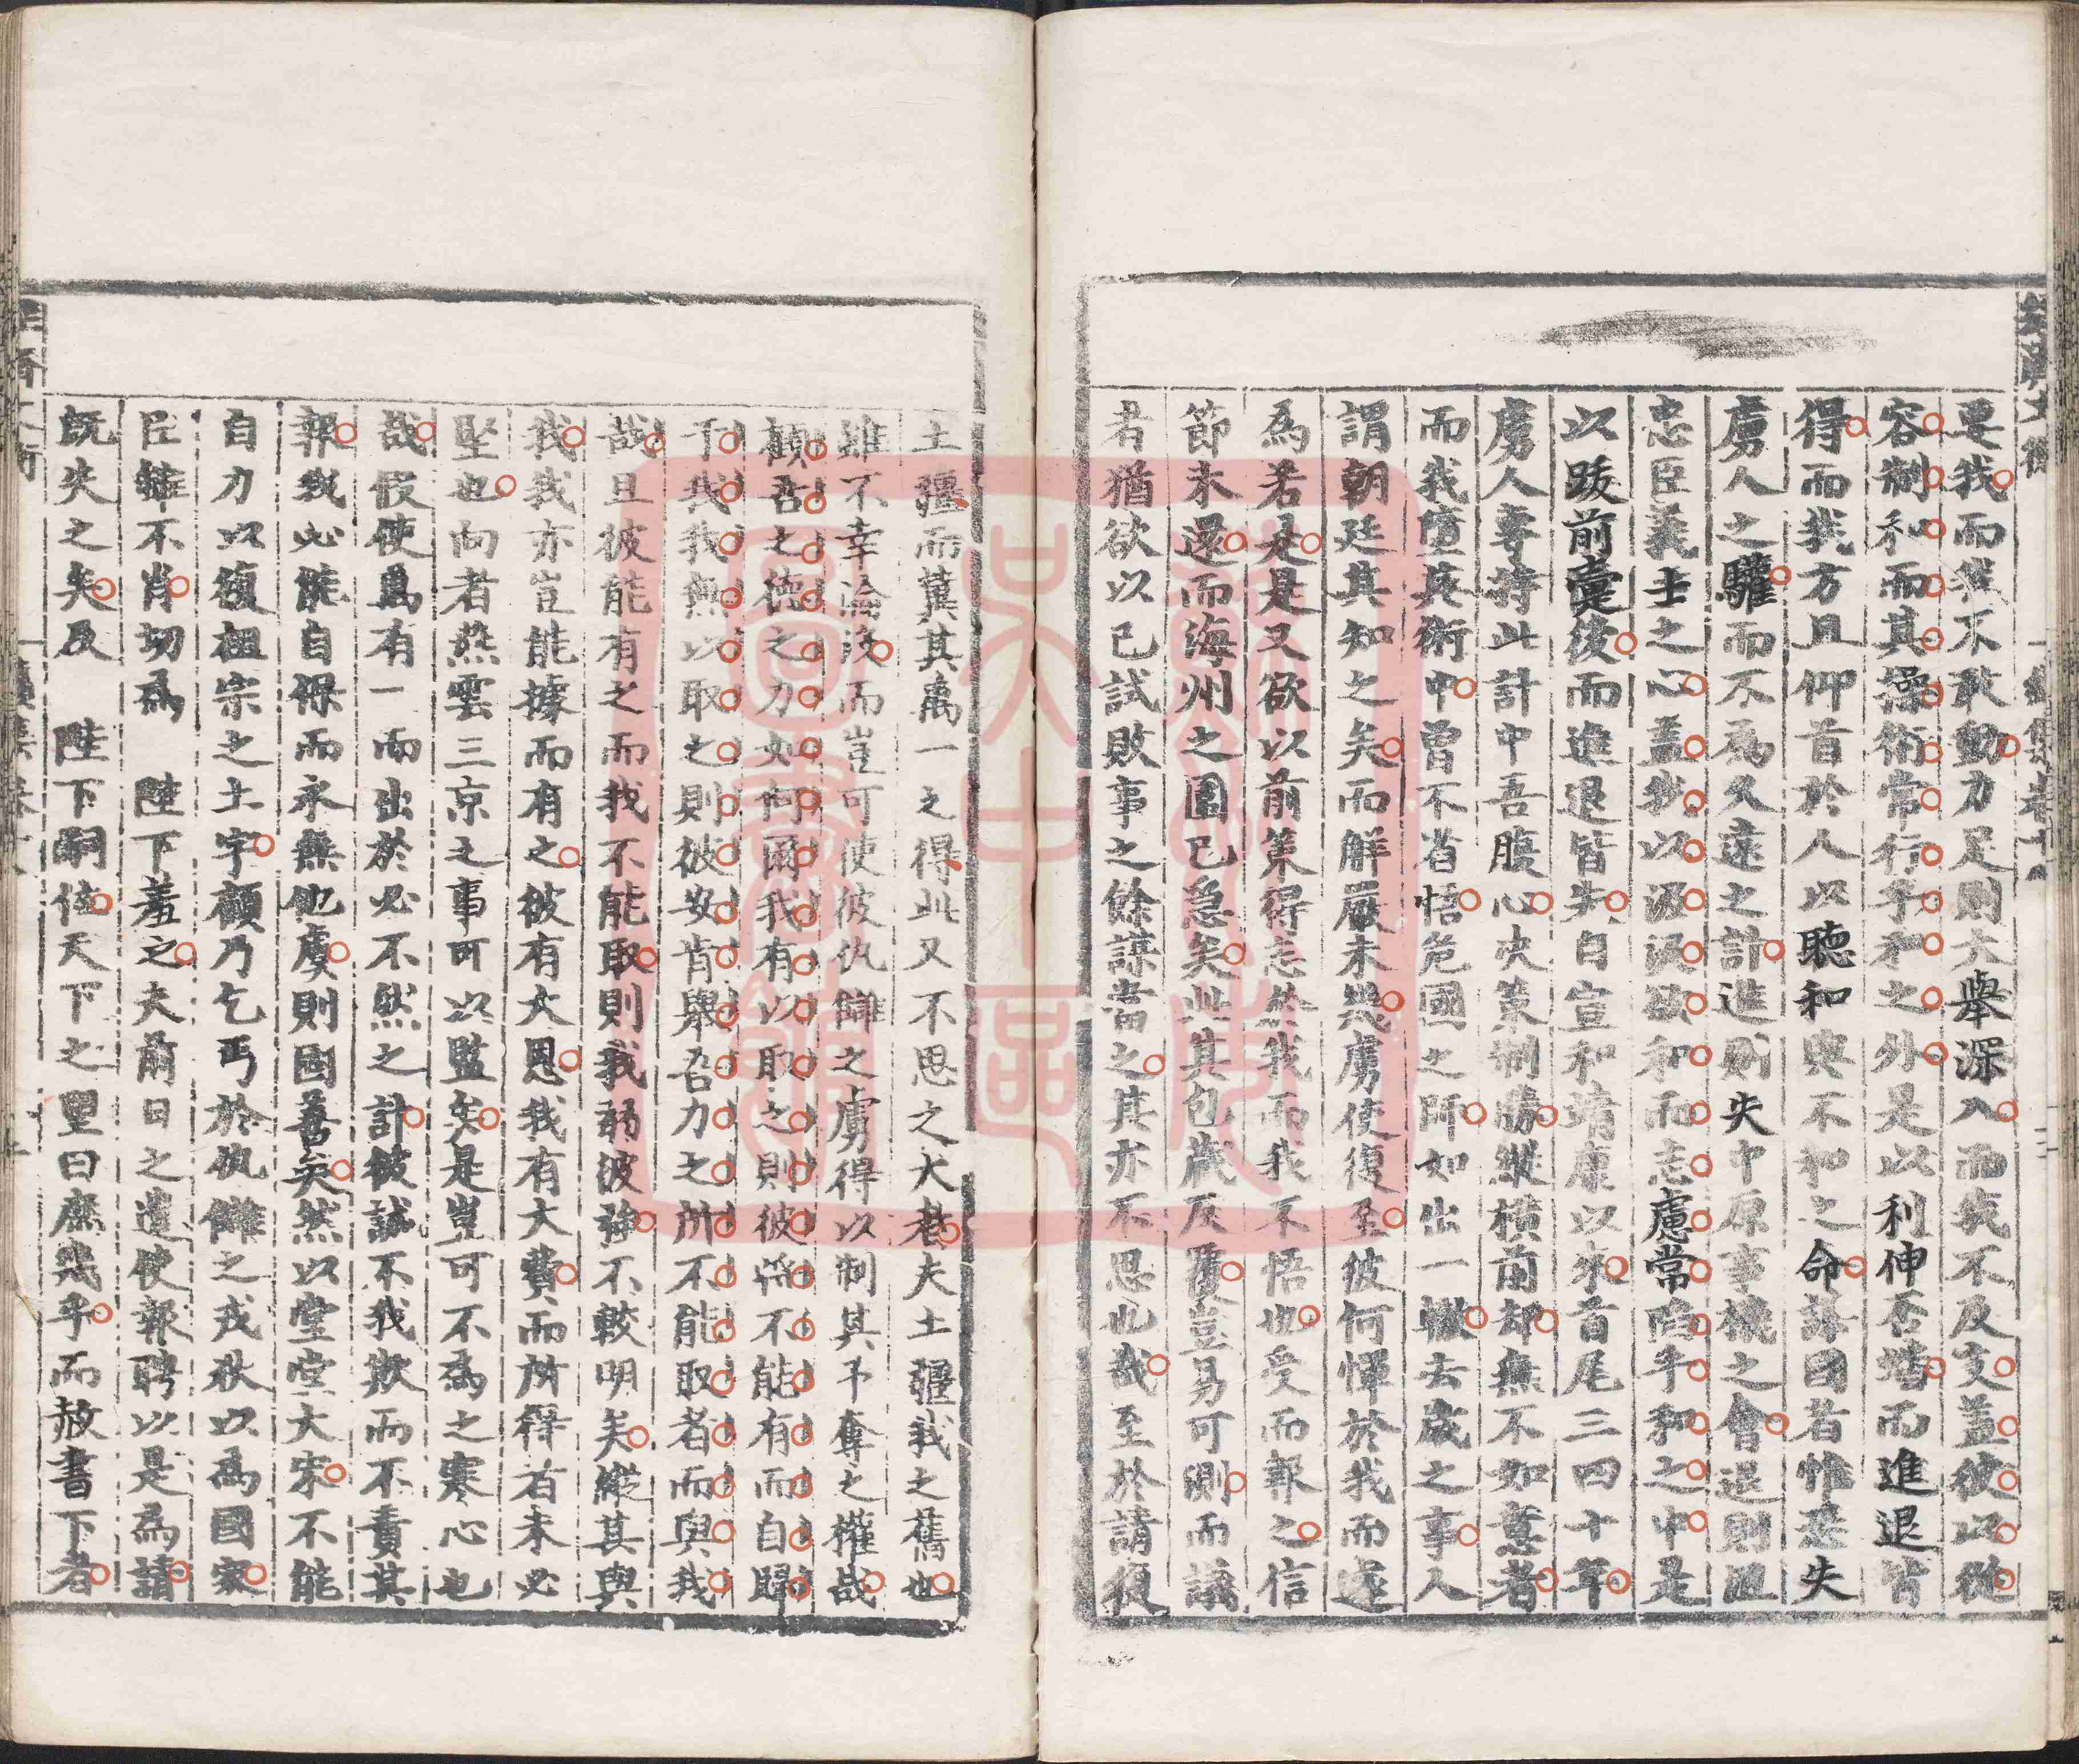 要我而我不敢動力足則大舉深入而我不反支蓋彼以從
容制和而其操術常行乎和之外是以利伸否蟠而進退皆
得而我方且仰首於人以聽和與不和之命謀國者惟恐失
虜人之驩而不為久遠之計進則失中原事機之會退則沮
忠臣義士之心蓋我以汲汲欲和而志慮常陷乎和之中是
以跋前疐後而進退皆失自宣和靖康以來首尾三四十年
虜人專持此計中吾腹心决策制勝縱横前却無不如意者
而我墮其術中曾不省悟危國之師如出一轍去歲之事人
謂朝廷其知之矣而解嚴未幾虜使復至彼何憚於我而遽
為若是是又欲以前策得志於我而我不悟也受而報之信
節未還而海州之圍已急矣此其包藏反覆豈易可測而議
者猶欲以已試敗事之餘謀當之其亦不思也哉至於請復
土疆而冀其萬一之得此又不思之大者夫土疆我之舊也
雖不幸淪没而豈可使彼仇讎之虜得以制其予奪之權哉
顧吾之德之力如何爾我有以取之則彼將不能有而自歸
于我我無以取之則彼安肯舉吾力之所不能取者而與我
哉且彼能有之而我不能取則我弱彼強不較明矣縱其與
我我亦豈能據而有之彼有大恩我有大費而所得者未必
堅也向者燕雲三京之事可以監矣是豈可不為之寒心也
哉假使萬有一而出於必不然之計彼誠不我欺而不責其
報我必能自保而永無他虞則固善矣然以堂堂大宋不能
自力以復祖宗之土宇顧乃乞丐於仇讎之戎狄以為國家
臣雖不肖切為　陛下羞之夫前日之遣使報聘以是為請
既失之矣及　陛下嗣位天下之望曰庶幾乎而赦書下者